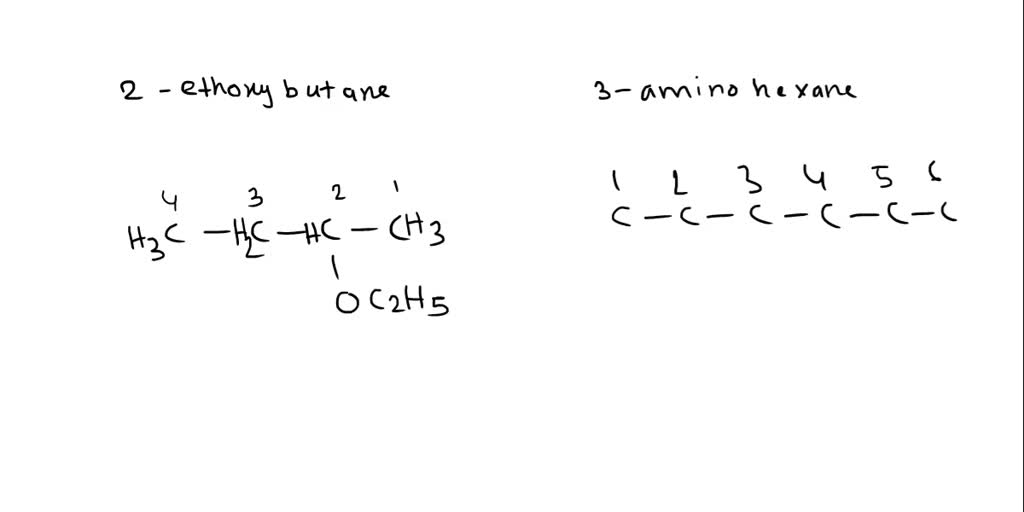 2 - ethoxy butane
4 3 2 1
H3C - H2C - HC - CH3
OC2H5
3 - amino hexane
1 2 3 4 5 6
C - C - C - C - C - C